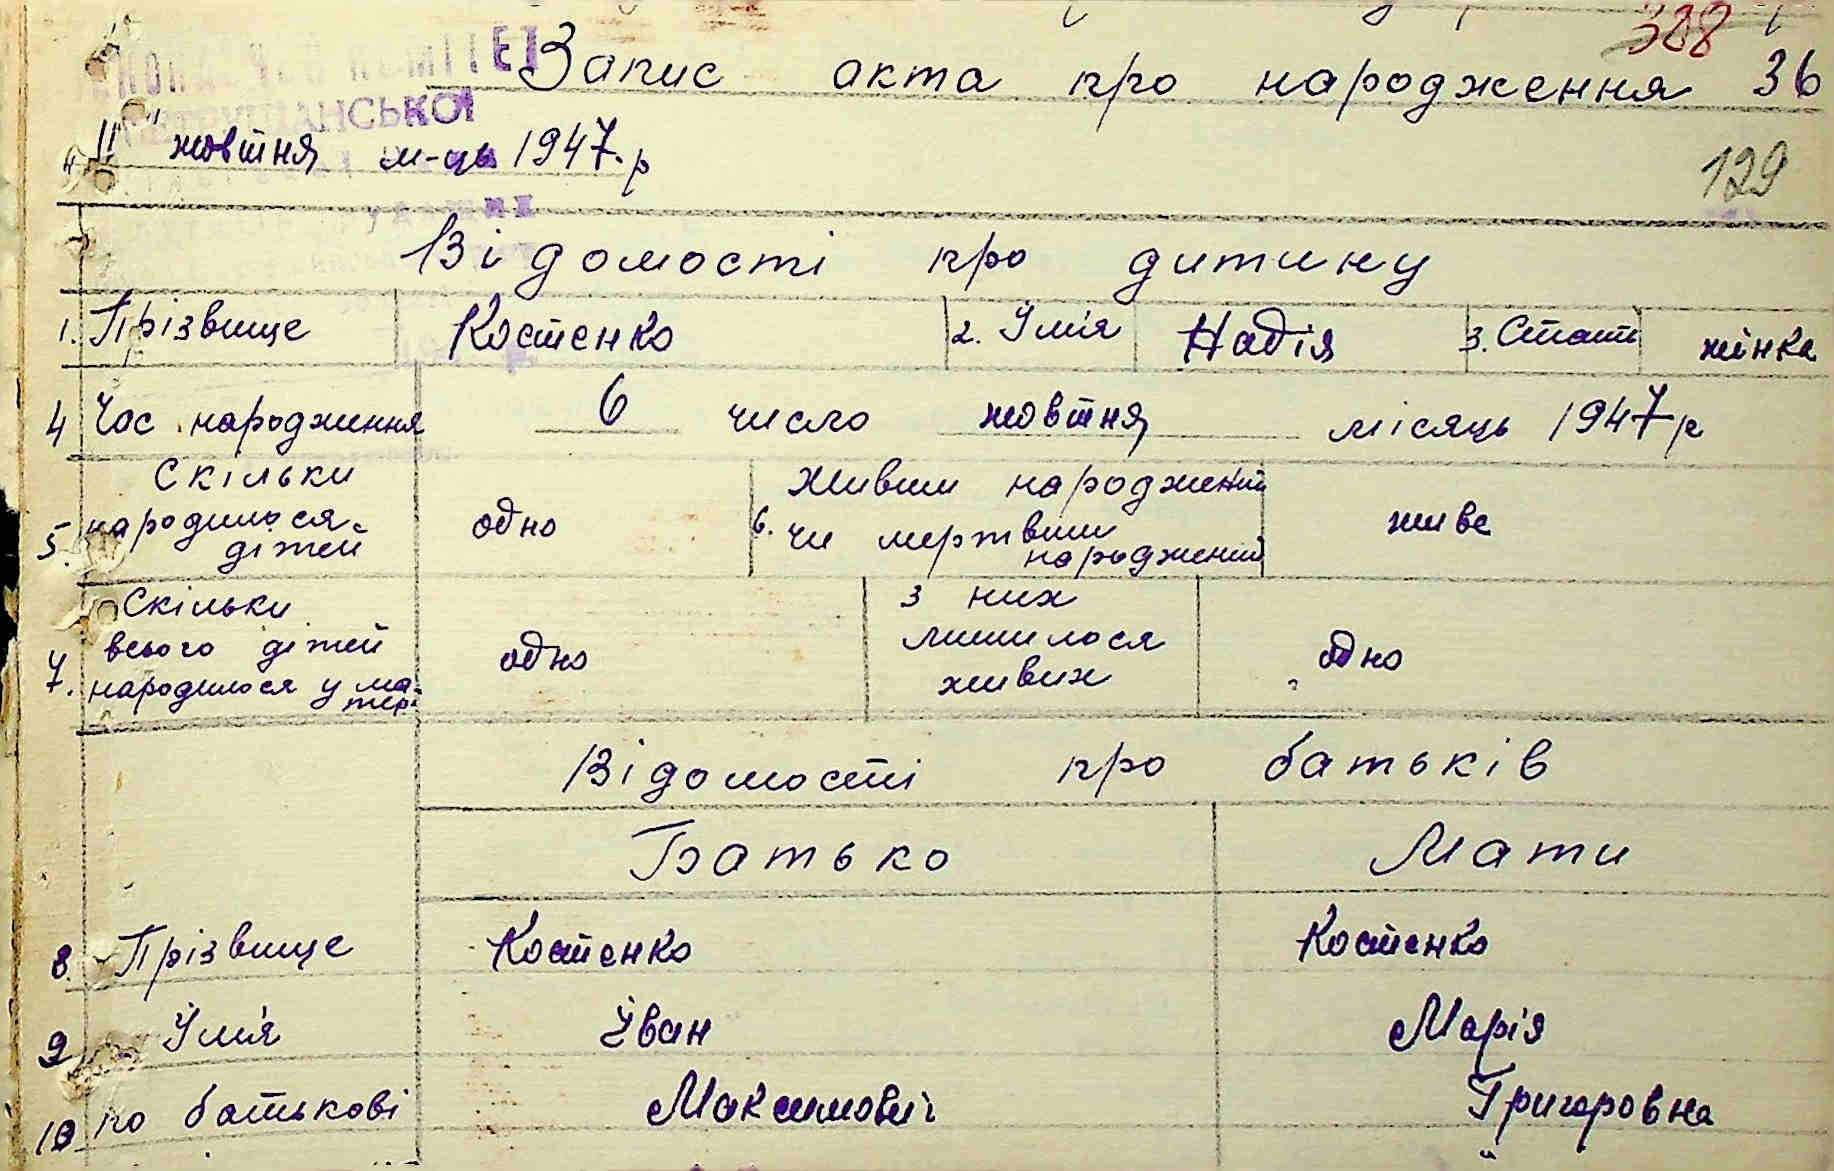 388
Запис акта про народження 36
"11" жовтня м-ць 1947.р
129
Відомості про дитину
1. Прізвище Костенко 2. Імʼя Надія 3. Стать жінка
4 Час народження 6 число жовтня місяць 1947 р
5. Скільки народилося дітей одно 6. Живим народжений чи мертвим народжений живе
7. Скільки всього дітей народилося у матері одно З них лишилося живих одно
Відомості про батьків
Батько Мати
8. Прізвище Костенко Костенко
9 Імʼя Іван Марія
10 по батькові Максимович Григоровна